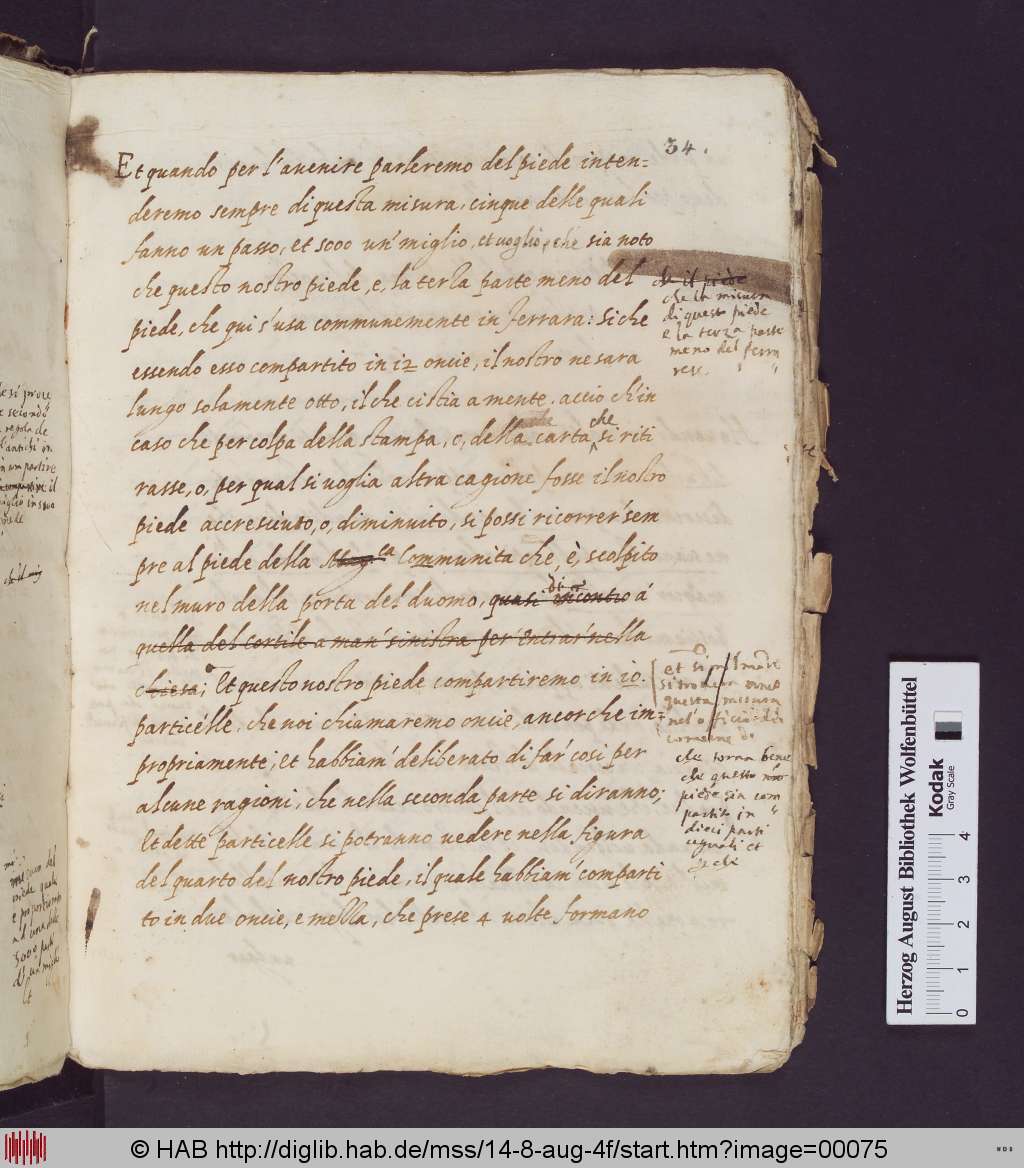 34.
Et quando per l'avenire parleremo del piede inten=
deremo sempre di questa misura, cinque delle quali
fanno un passo, et 5000 un' miglio, et voglio, che sia noto
che questo nostro piede, e, la terza parte meno del
piede, che qui s'usa communemente in Ferrara: Si che
essendo esso compartito in 12 oncie, il nostro ne sara
lungo solamente otto, il che ci stia a mente. accio ch'in
caso che per colpa della stampa, o, della carta che si riti
rasse, o, per qual si voglia altra cagione fosse il nostro
piede accresciuto, o, diminuito, si possi ricorrer' sem
pre al piede della Communita che, è, scolpito
nel muro della porta del duomo, quasi incontro á
quella del Cortile a man' sinistra per' entrar' nella
chiesa; Et questo nostro piede compartiremo in 10.
particelle, che noi chiamaremo oncie, ancor che im=
propriamente; et habbiam' deliberato di far' cosi per
alcune ragioni, che nella seconda parte si diranno;
Et dette particelle si potranno vedere nella figura
del quarto del nostro piede, il quale habbiam' comparti
to in due oncie, e mezza, che prese 4 volte formano
che il piede
che la misura
di questo piede
e la terza parte
meno del ferra
rese
questa misura
che torna bene
che questo
piede sia com
partito in
dieci parti
uguali et
Herzog August Bibliothek Wolfenbüttel
Kodak
Gray Scale
0 1 2 3 4
© HAB http://diglib.hab.de/mss/14-8-aug-4f/start.htm?image=00075